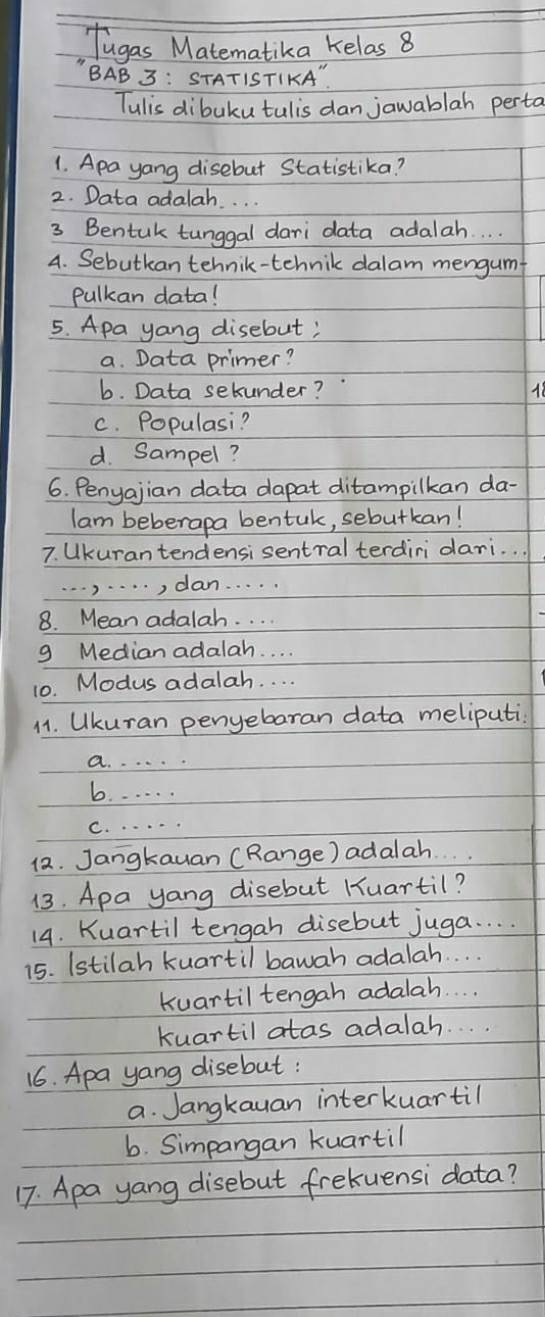 Tugas Matematika Kelas 8
"BAB 3: STATISTIKA".
Tulis dibuku tulis dan jawablah perta
1. Apa yang disebut Statistika?
2. Data adalah....
3 Bentuk tunggal dari data adalah....
4. Sebutkan tehnik-tehnik dalam mengum-
pulkan data!
5. Apa yang disebut:
a. Data primer?
b. Data sekunder?
18
c. Populasi?
d. Sampel?
6. Penyajian data dapat ditampilkan da-
lam beberapa bentuk, sebutkan!
7. Ukuran tendensi sentral terdiri dari...
..., ...., dan.....
8. Mean adalah....
9 Median adalah....
10. Modus adalah....
11. Ukuran penyebaran data meliputi:
a......
b......
c......
12. Jangkauan (Range) adalah....
13. Apa yang disebut Kuartil?
14. Kuartil tengah disebut juga....
15. Istilah kuartil bawah adalah....
kuartil tengah adalah....
kuartil atas adalah....
16. Apa yang disebut:
a. Jangkauan interkuartil
b. Simpangan kuartil
17. Apa yang disebut frekuensi data?